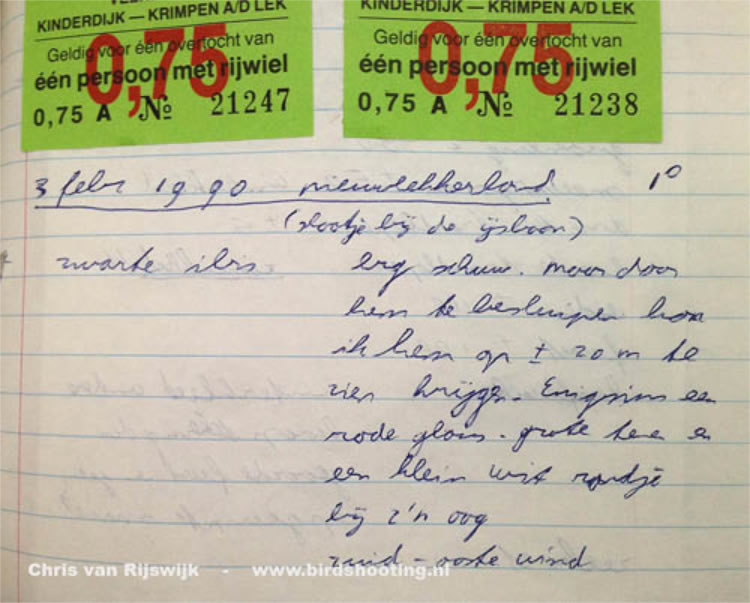 KINDERDIJK — KRIMPEN A/D LEK
Geldig voor één overtocht van
één persoon met rijwiel
0,75
0,75 A № 21247
KINDERDIJK — KRIMPEN A/D LEK
Geldig voor één overtocht van
één persoon met rijwiel
0,75
0,75 A № 21238
3 febr 1990 nieuwlekkerland 1°
(slootje bij de ijsbaan)
zwarte ibis erg schuw. maar door
hem te besluipen kon
ik hem op ± 20 m te
zien krijgen. Enigsins een
rode glans. grote tenen en
een klein wit randje
bij z'n oog
zuid - ooste wind
Chris van Rijswijk - www.birdshooting.nl